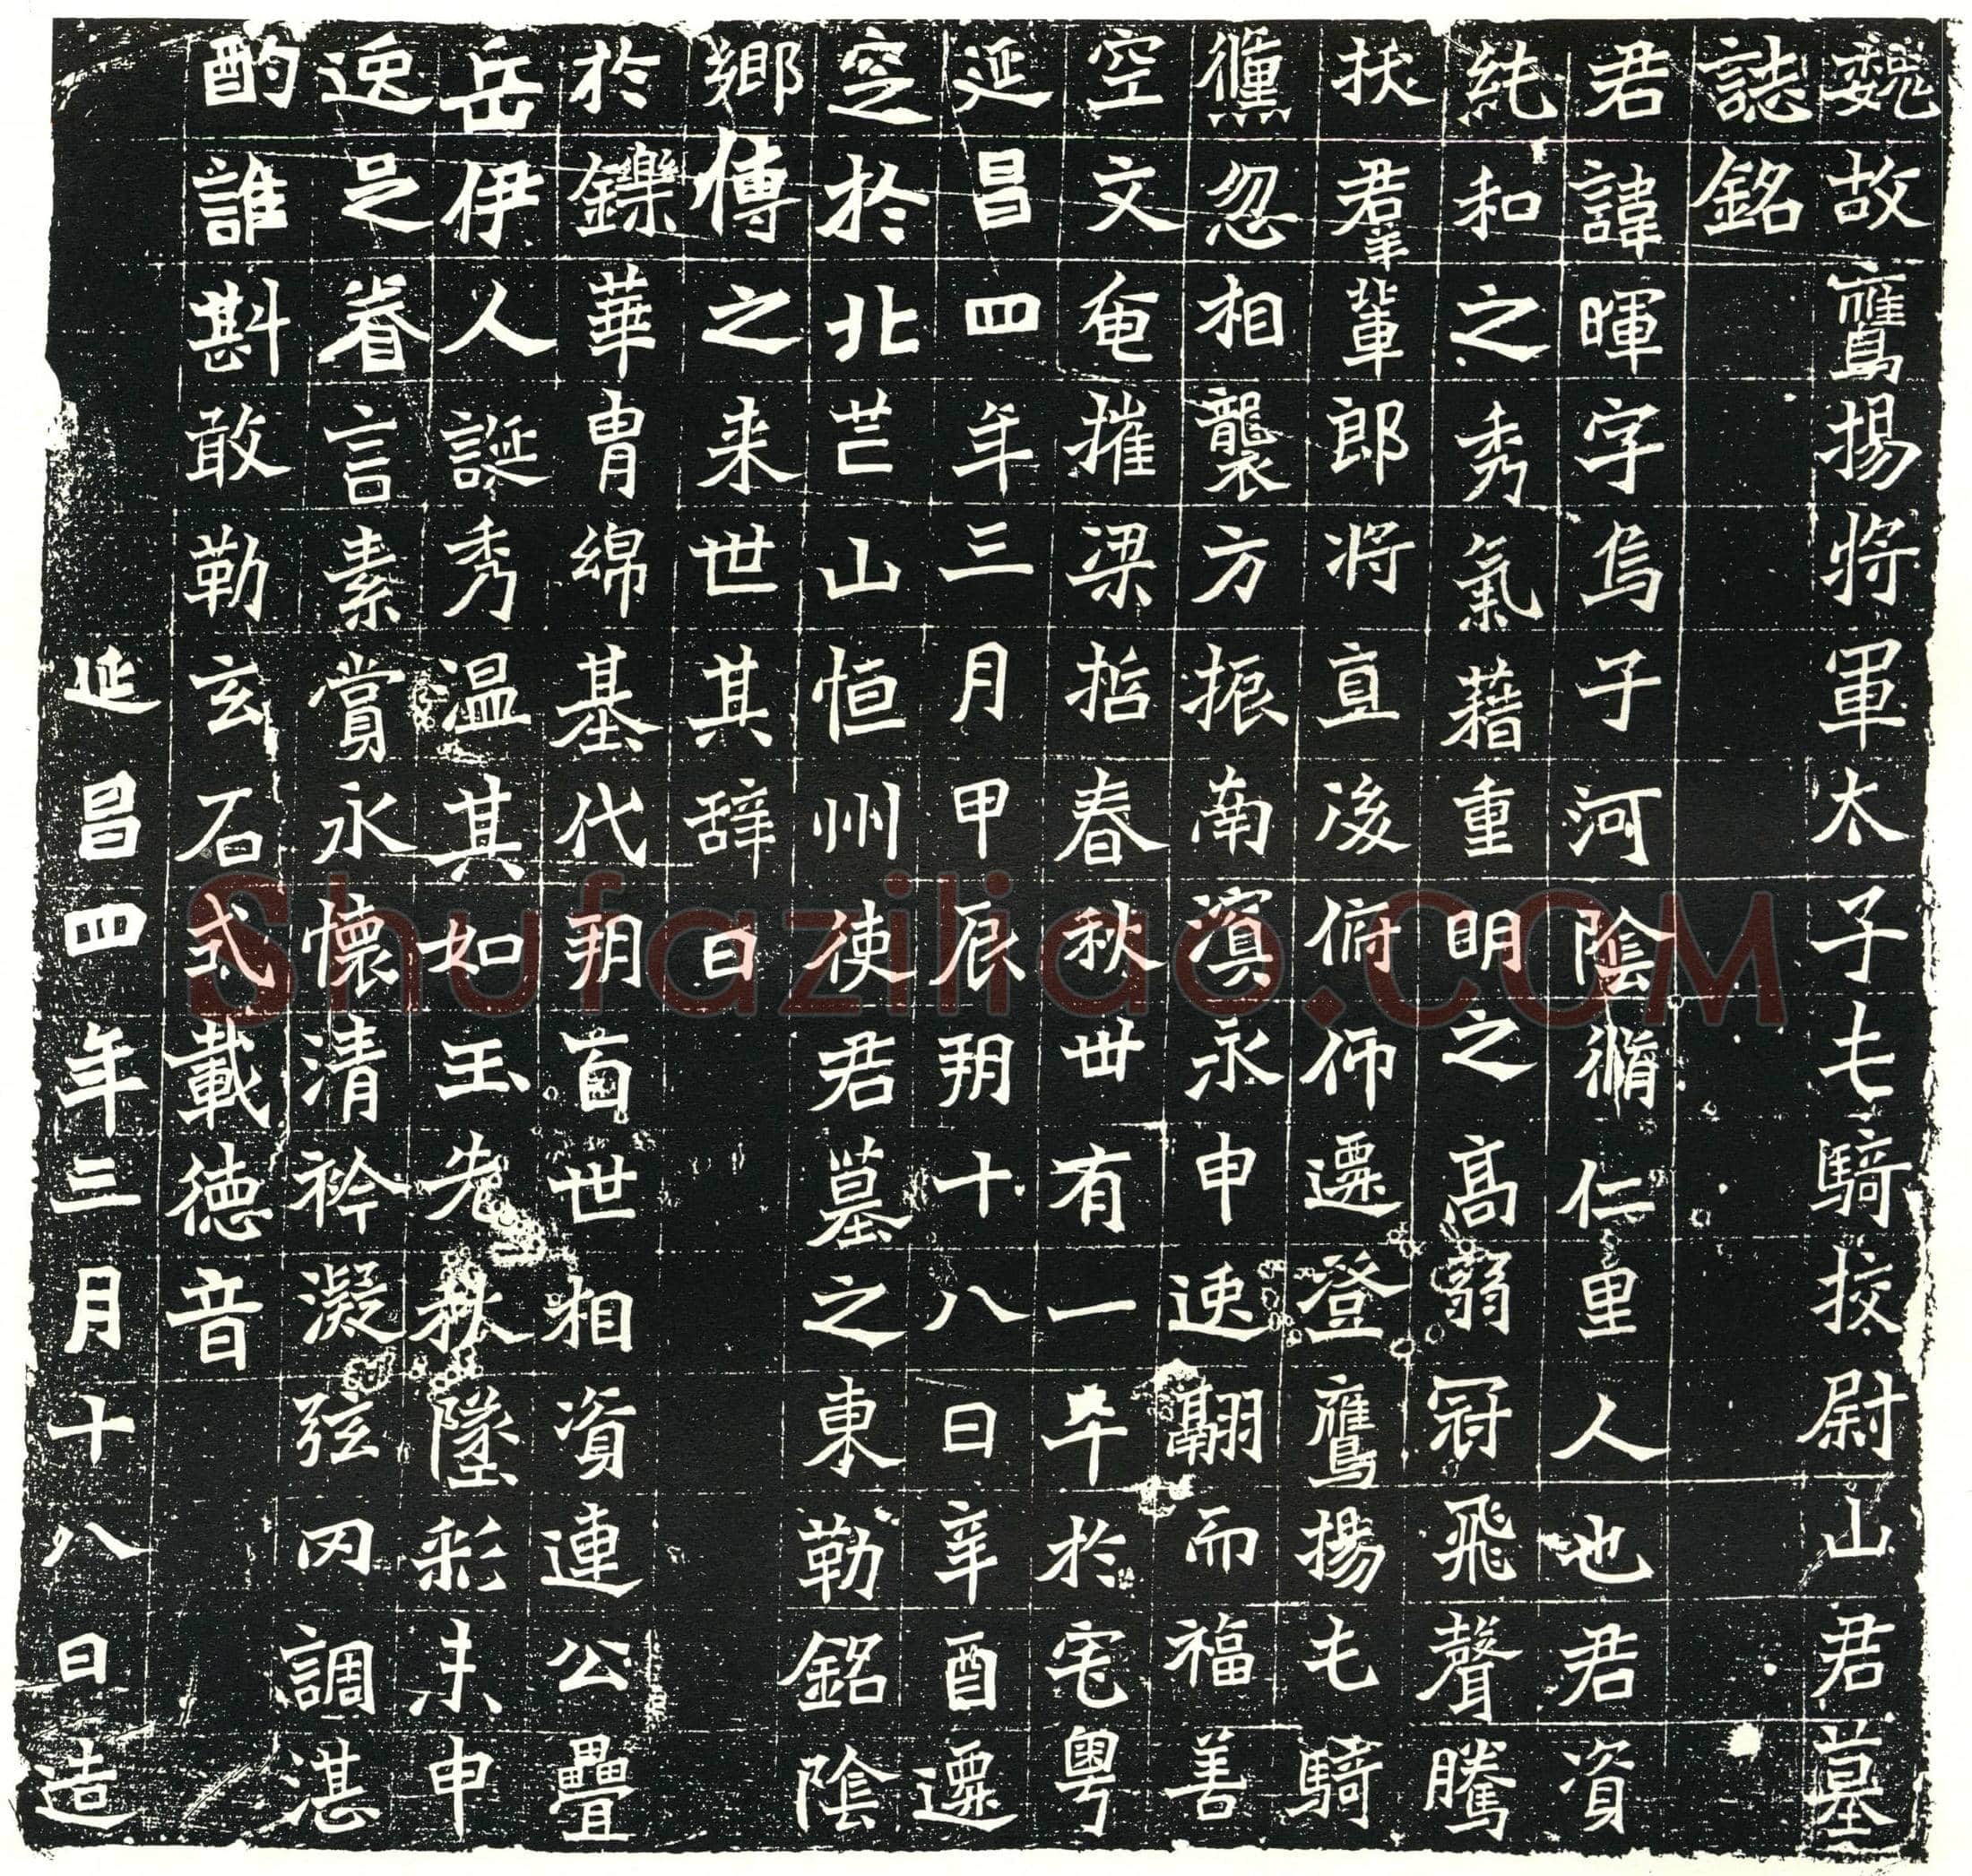 魏故鷹揚將軍太子屯騎校尉山君墓
誌銘
君諱暉字烏子河陰脩仁里人也君資
純和之秀氣藉重明之高弱冠飛聲騰
扶羣輩郎将直後俯仰遷登鷹揚屯騎
儵忽相襲方振南溟永申逸翮而福善
空文奄摧梁哲春秋卌有一卒於宅粵
延昌四年三月甲辰朔十八日辛酉遷
窆於北芒山恒州使君墓之東勒銘陰
鄉傳之来世其辞曰
於鑠華胄綿基代朔百世相資連公疊
岳伊人誕秀温其如玉先秋墜彩未申
逸足眷言素賞永懷清衿凝弦罔調湛
酌誰斟敢勒玄石式載德音
延昌四年三月十八日造
Shufaziliao.COM